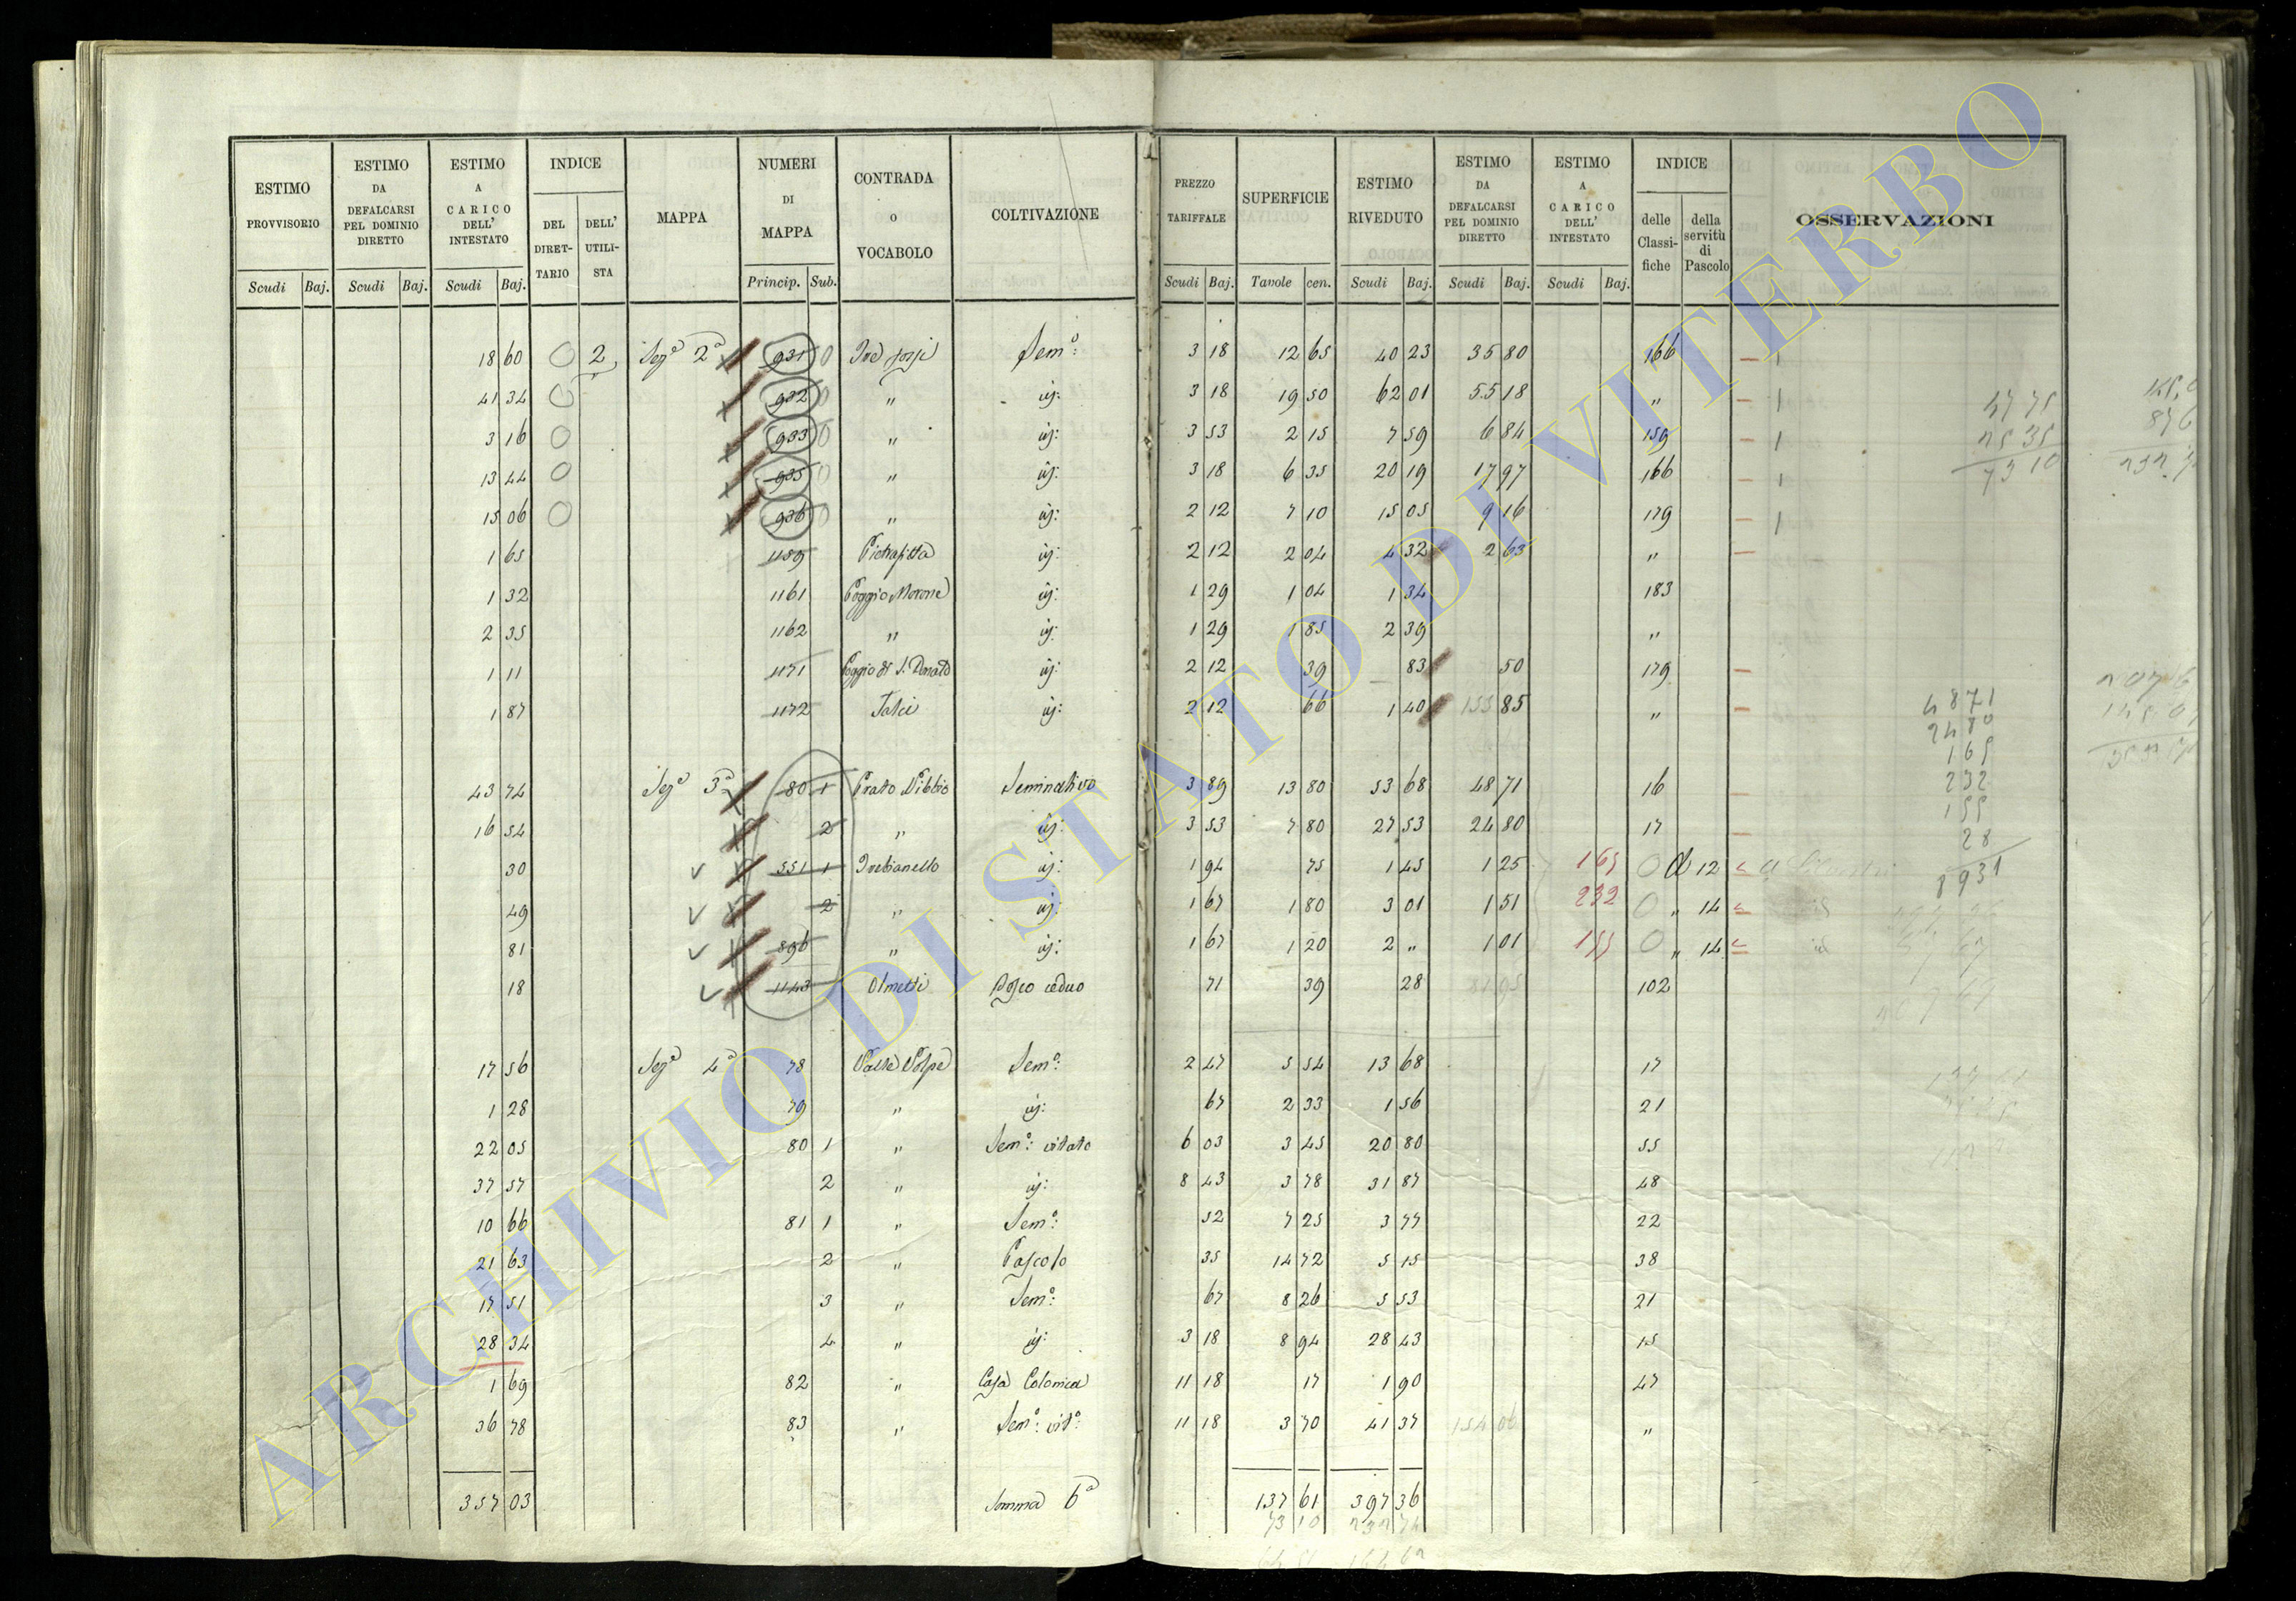 ESTIMO PROVVISORIO | ESTIMO DA DEFALCARSI PEL DOMINIO DIRETTO | ESTIMO A CARICO DELL' INTESTATO | INDICE | MAPPA | NUMERI DI MAPPA | CONTRADA O VOCABOLO | COLTIVAZIONE | PREZZO TARIFFALE | SUPERFICIE | ESTIMO RIVEDUTO | ESTIMO DA DEFALCARSI PEL DOMINIO DIRETTO | ESTIMO A CARICO DELL' INTESTATO | INDICE | OSSERVAZIONI
DEL DIRET-TARIO | DELL' UTILI-STA | delle Classi-fiche | della servitù di Pascolo
Scudi | Baj. | Scudi | Baj. | Scudi | Baj. | Princip. | Sub. | Scudi | Baj. | Tavole | cen. | Scudi | Baj. | Scudi | Baj. | Scudi | Baj.
18 60 | 0 | 2 | Seze 2a | 931 | Sem.o: | 3 18 | 12 65 | 40 23 | 35 80 | 166 | 1
41 34 | 0 | 932 | " | id: | 3 18 | 19 50 | 62 01 | 55 18 | " | 1
3 16 | 0 | 933 | " | id: | 3 53 | 2 15 | 7 59 | 6 84 | 159 | 1
13 44 | 0 | 935 | " | id: | 3 18 | 6 35 | 20 19 | 17 97 | 166 | 1
15 06 | 0 | 936 | " | id: | 2 12 | 7 10 | 15 05 | 9 16 | 179 | 1
1 65 | 1159 | Pietrafitta | id: | 2 12 | 2 04 | 4 32 | 2 63 | "
1 32 | 1161 | Poggio Morone | id: | 1 29 | 1 04 | 1 34 | 183
2 35 | 1162 | " | id: | 1 29 | 1 85 | 2 39 | "
1 11 | 1171 | Poggio di S. Donato | id: | 2 12 | 39 | 83 | 50 | 179
1 87 | 1172 | id: | 2 12 | 66 | 1 40 | 85 | "
43 74 | Seze 3a | 80 1 | Prato Nibbio | Seminativo | 3 89 | 13 80 | 53 68 | 48 71 | 16
16 54 | 2 | " | id: | 3 53 | 7 80 | 27 53 | 24 80 | 17
30 | 551 1 | Trebianello | id: | 1 94 | 75 | 1 45 | 1 25 | 165 | 0 | 12
49 | 2 | " | id: | 1 67 | 1 80 | 3 01 | 1 51 | 232 | 0 | " 14 | id
81 | 896 | " | id: | 1 67 | 1 20 | 2 " | 1 01 | 155 | 0 | " 14 | id
18 | 1143 | Olmetti | Bosco ceduo | 71 | 39 | 28 | 102
17 56 | Sezе 4a | 78 | Valle Volpe | Sem.o: | 2 47 | 5 54 | 13 68 | 17
1 28 | 79 | " | id: | 67 | 2 33 | 1 56 | 21
22 05 | 80 1 | " | Sem.o: vitato | 6 03 | 3 45 | 20 80 | 55
37 57 | 2 | " | id: | 8 43 | 3 78 | 31 87 | 48
10 66 | 81 1 | " | Sem.o: | 52 | 7 25 | 3 77 | 22
21 63 | 2 | " | Pascolo | 35 | 14 72 | 5 15 | 38
17 51 | 3 | " | Sem.o: | 67 | 8 26 | 5 53 | 21
28 34 | 4 | " | id: | 3 18 | 8 94 | 28 43 | 15
1 69 | 82 | " | Casa Colonica | 11 18 | 17 | 1 90 | 47
36 78 | 83 | " | Sem.o: vit.o: | 11 18 | 3 70 | 41 37 | "
357 03 | Somma 6a | 137 61 | 397 36
73 10
4871
2480
165
232
155
28
8931
ARCHIVIO DI STATO DI VITERBO